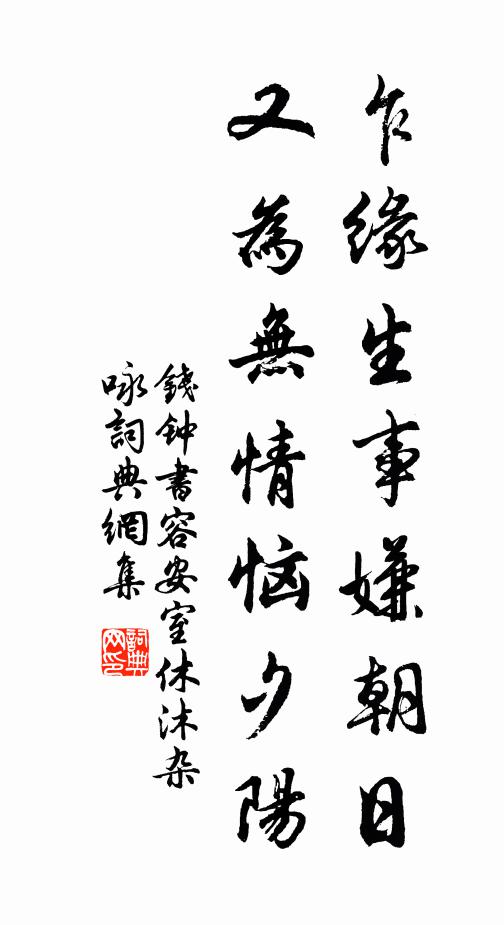 乍緣生事嫌朝日
又為無情恼夕陽
錢钟書容安室休沐杂
咏詞典網集
詞典网印